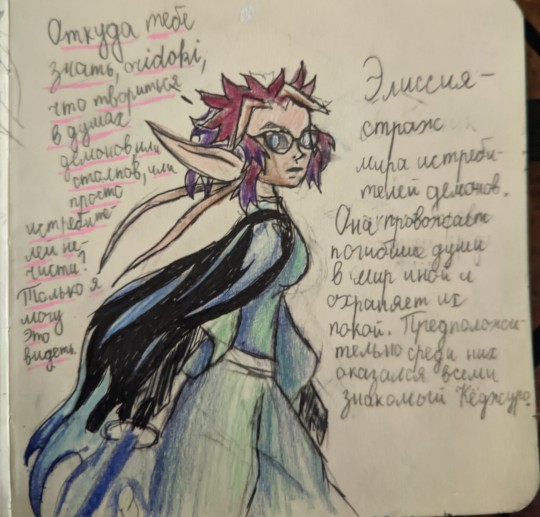 Откуда тебе
знать, oridoki,
что твориться
в душах
демонов или
столпов, или
просто
истребите-
лей не-
чисти?
Только я
могу
это
видеть.
Элиссия -
страж
мира истреби-
телей демонов.
Она провожает
погибшие души
в мир иной и
охраняет их
покой. Предположи-
тельно среди них
оказался всеми
знакомый Кёджуро.